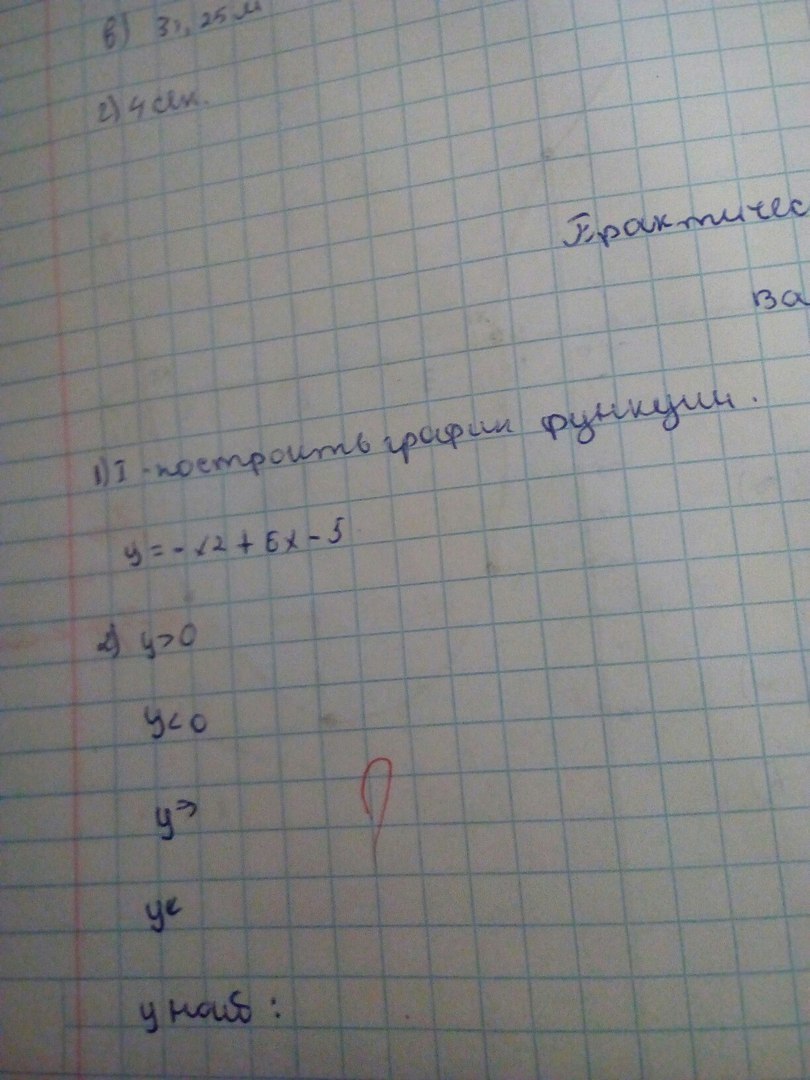 в) 31,25 м
г) 4 сек.
Практичес
ва
1) I - построить график функции.
y = - x2 + 6x - 5
2) y > 0
y < 0
y >
y <
y наиб :